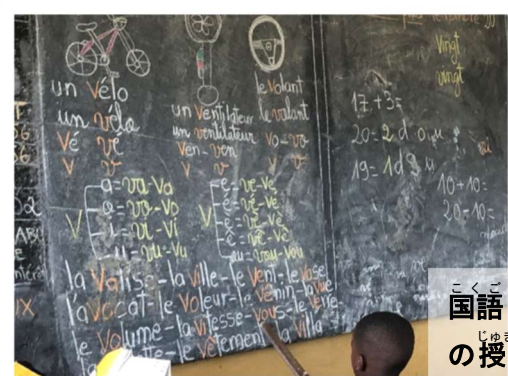 un vélo
un vélo
Vé vé
V v
un ventilateur
un ventilateur
Ven-ven
V v
le volant
le volant
Vo-vo
V v
V
a=va-Va
o=vo-Vo
i=vi-Vi
u=vu-Vu
V
e=ve-Ve
é=vé-Vé
è=vè-Vè
ê=vê-Vê
ou=vou-Vou
la Valise-la ville-le vent-le vase
l'avocat-le voleur-le venin-la vue
le volume-la vitesse-vous-le
le vêtement la villa
Vingt
vingt
17+3=
20=2d 0u
19=1d 9u
10+10=
20-10=
こくご
国語
じゅ
の授